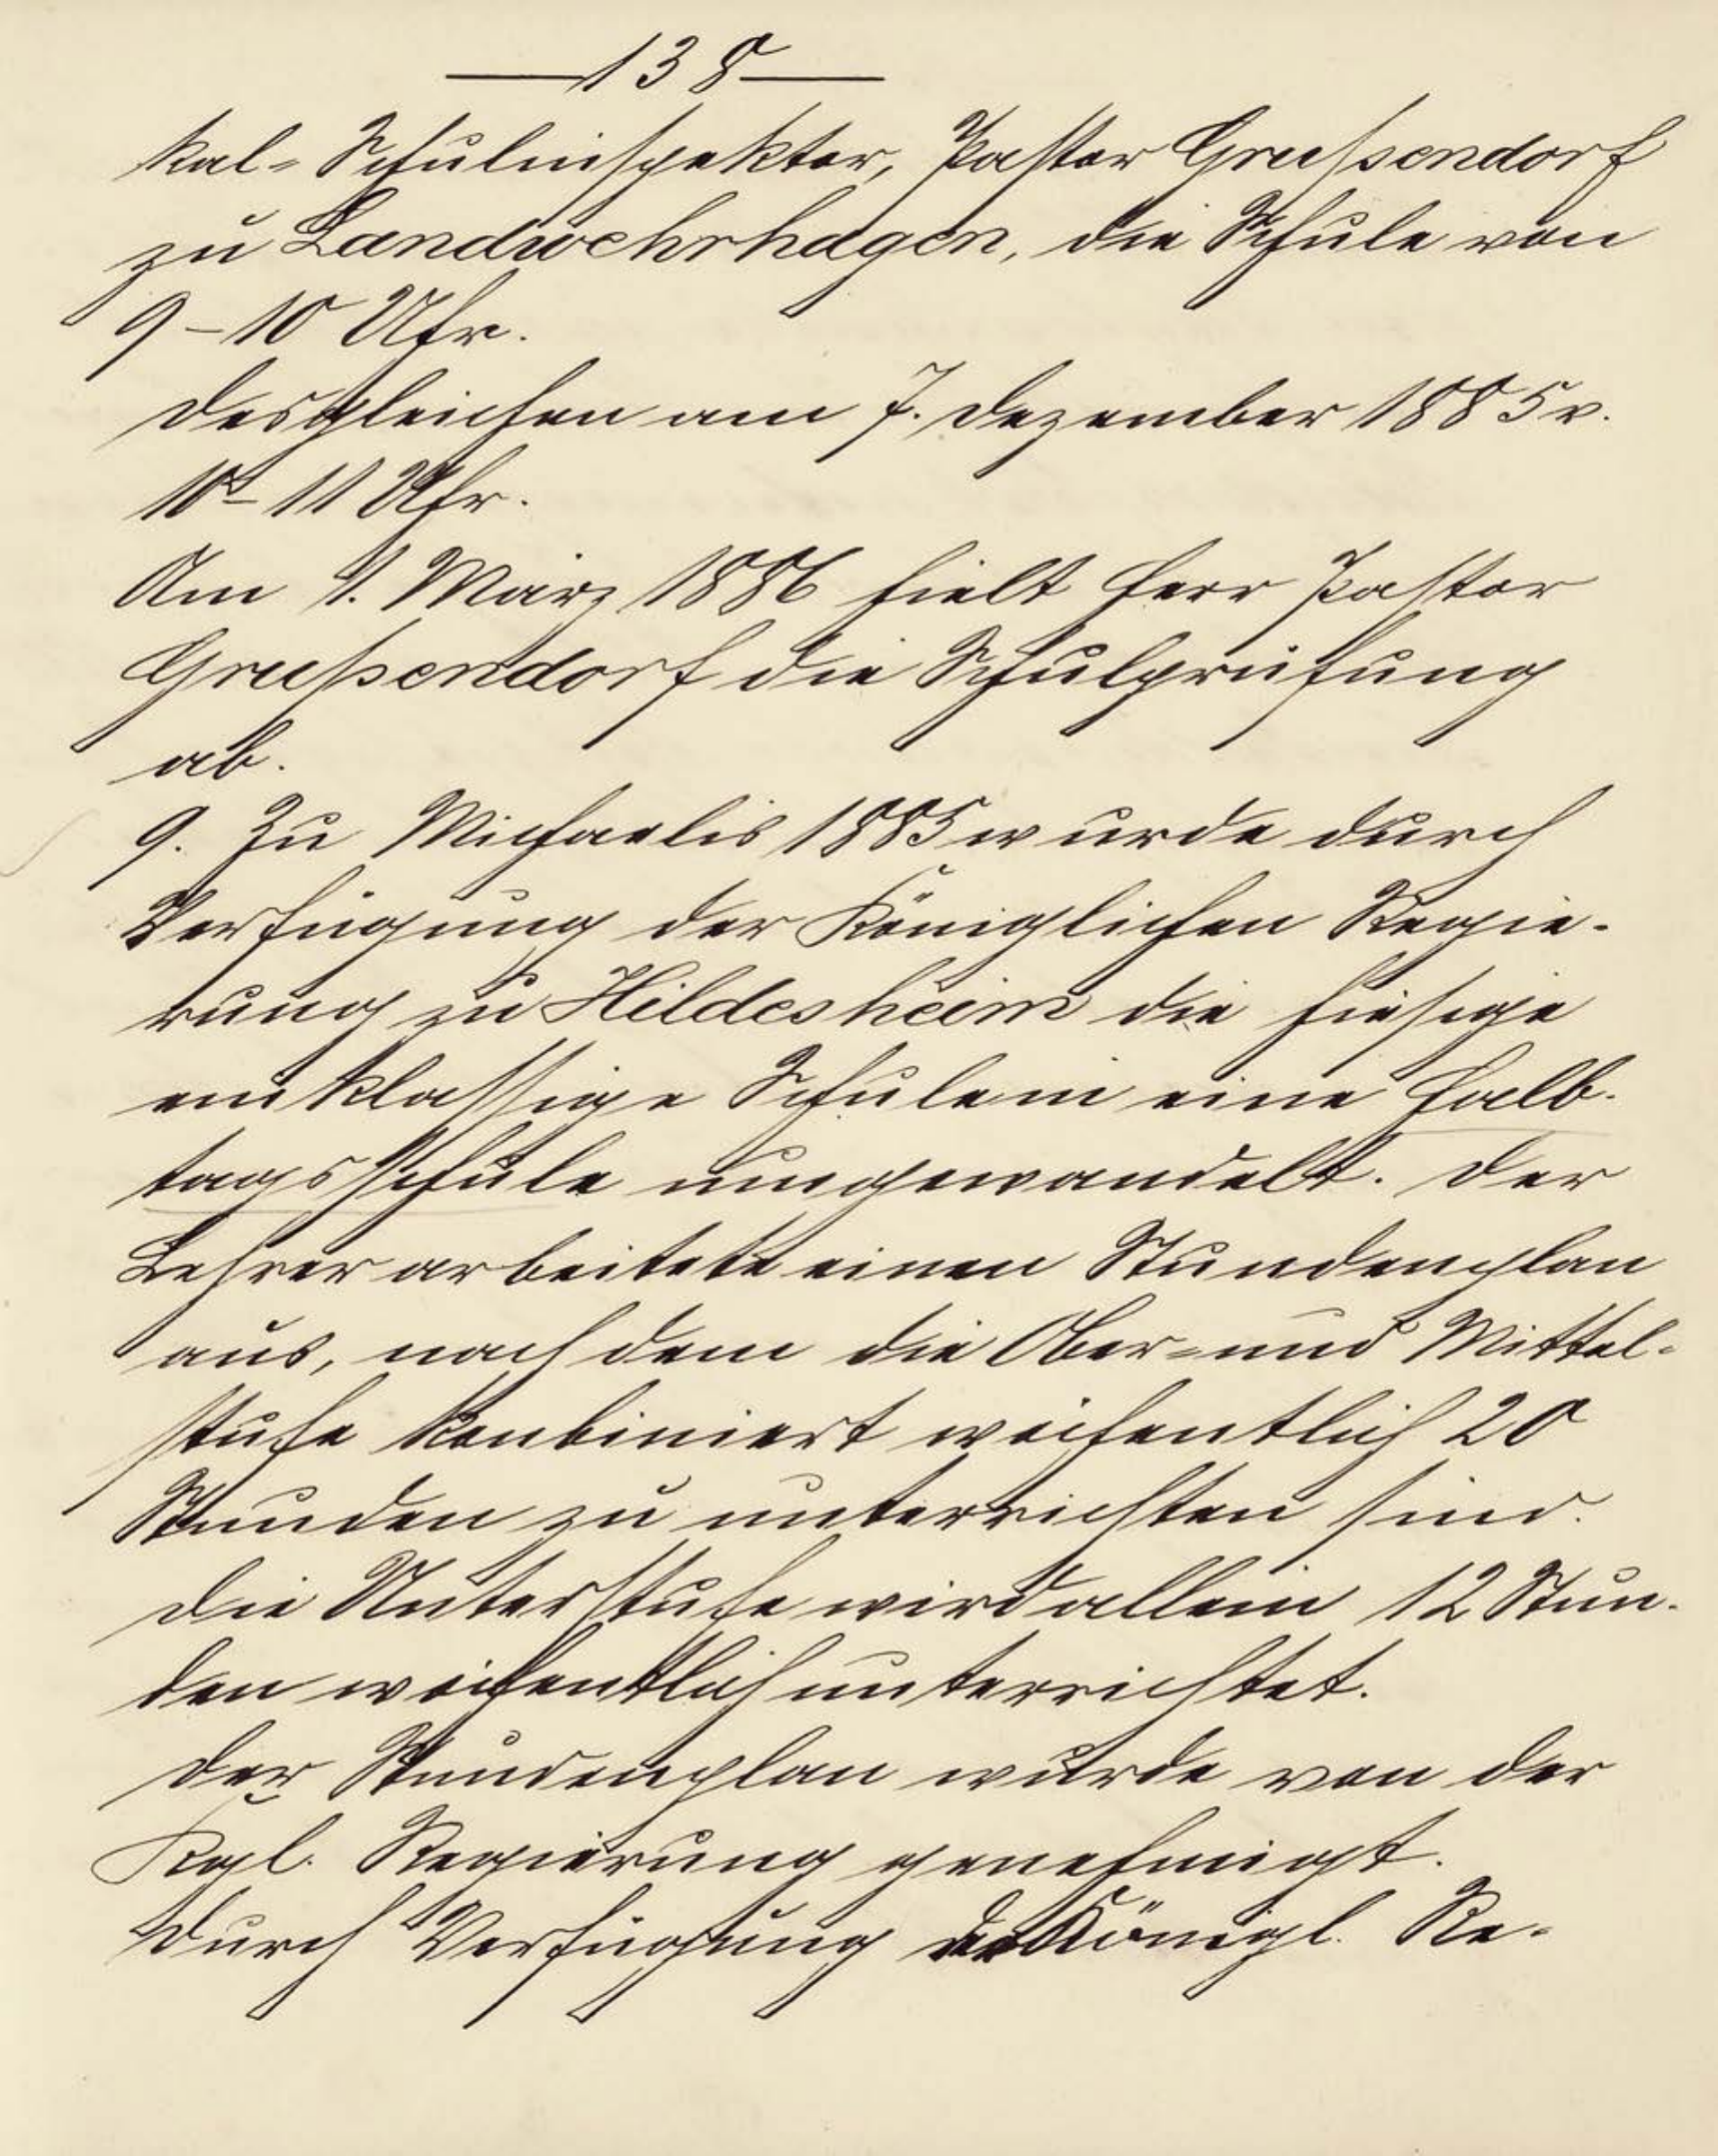 —138—
kal-Schulinspektor, Pastor Greußendorf
zu Landwehrhagen, die Schule von
9–10 Uhr.
Desgleichen am 7. Dezember 1885 v.
10–11 Uhr.
Am 1. März 1886 hielt Herr Pastor
Greußendorf die Schulprüfung
ab.
9. Zu Michaelis 1885 wurde durch
Verfügung der Königlichen Regie-
rung zu Hildesheim die hiesige
einklassige Schule in eine Halb-
tagsschule umgewandelt. Der
Lehrer arbeitete einen Stundenplan
aus, nach dem die Ober- und Mittel-
stufe kombiniert wöchentlich 20
Stunden zu unterrichten sind.
Die Unterstufe wird allein 12 Stun-
den wöchentlich unterrichtet.
Der Stundenplan wurde von der
Kgl. Regierung genehmigt.
Durch Verfügung der Königl. Re-